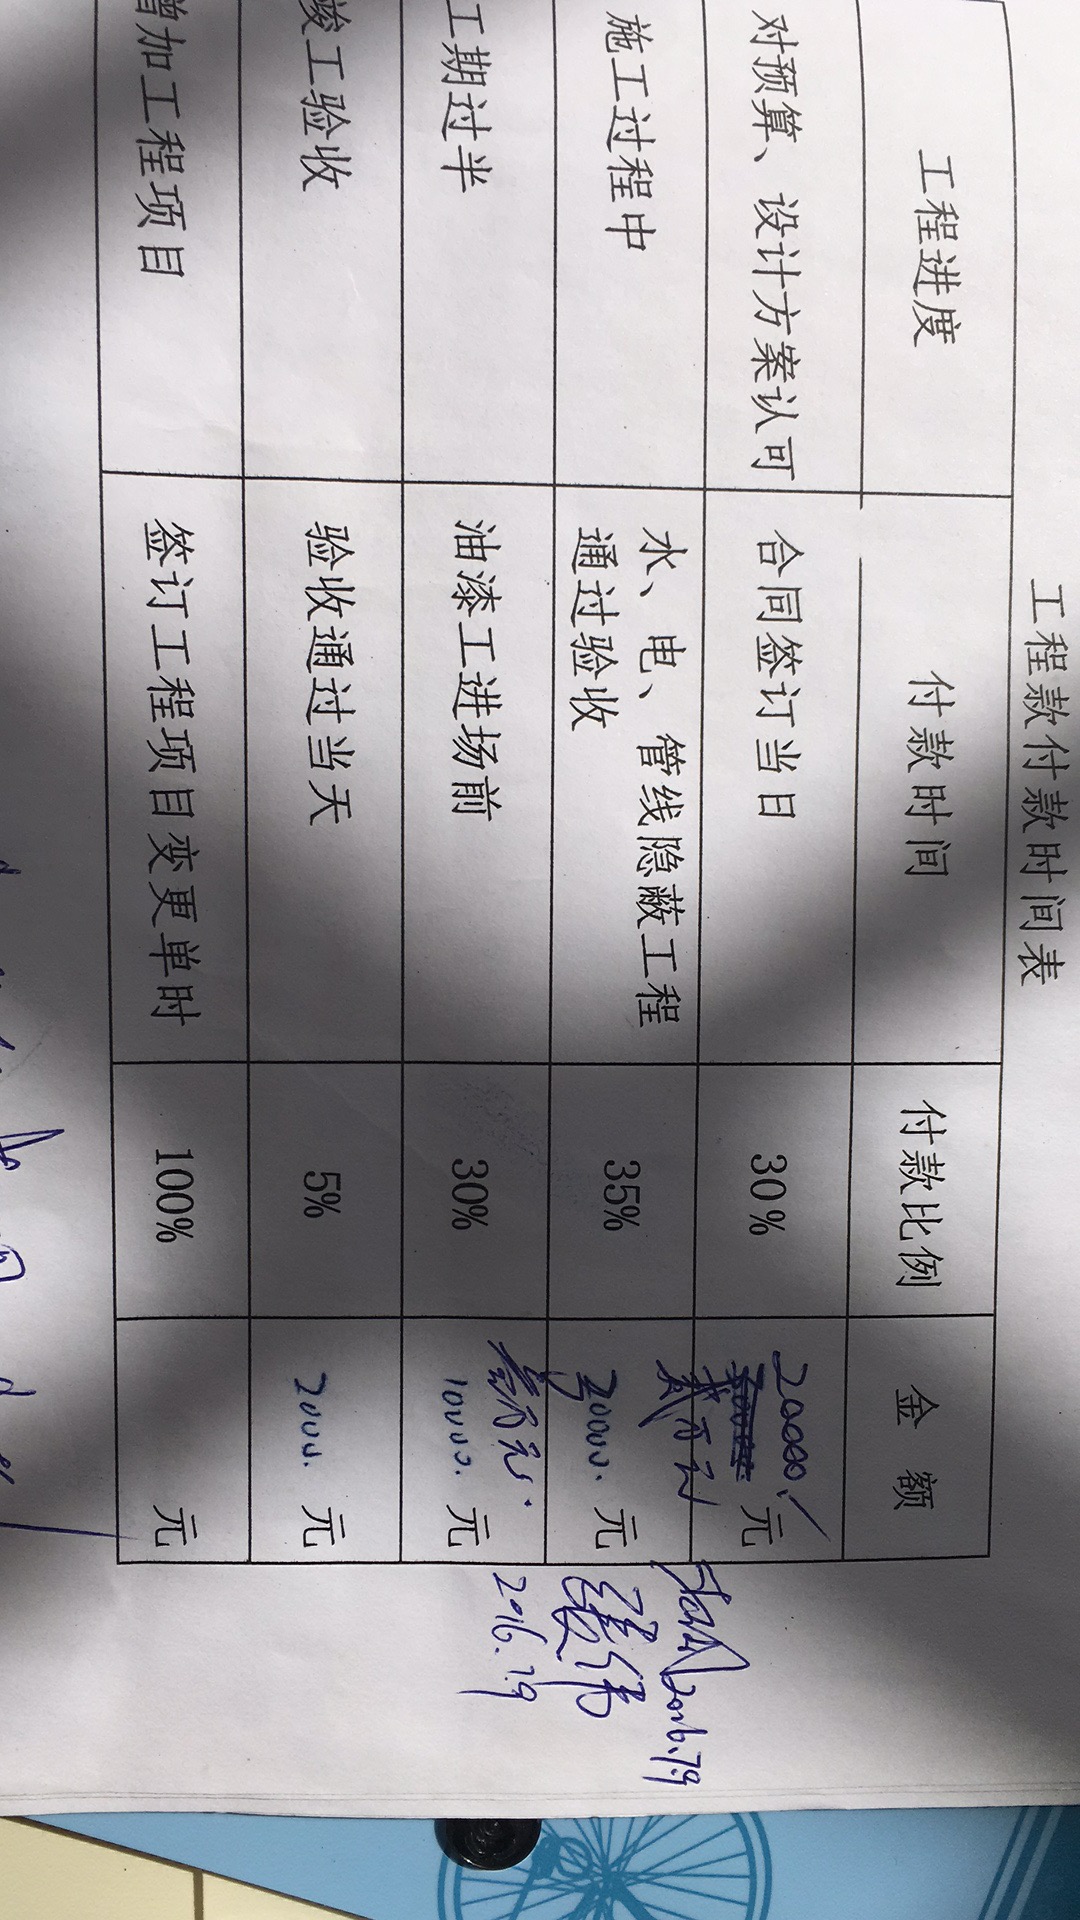 工程款付款时间表
工程进度 付款时间 付款比例 金 额
对预算、设计方案认可 合同签订当日 30% 20000 元
施工过程中 水、电、管线隐蔽工程
通过验收 35% 20000. 元
工期过半 油漆工进场前 30% 10000. 元
竣工验收 验收通过当天 5% 2000. 元
增加工程项目 签订工程项目变更单时 100% 元
2016.7.9
2016.7.9